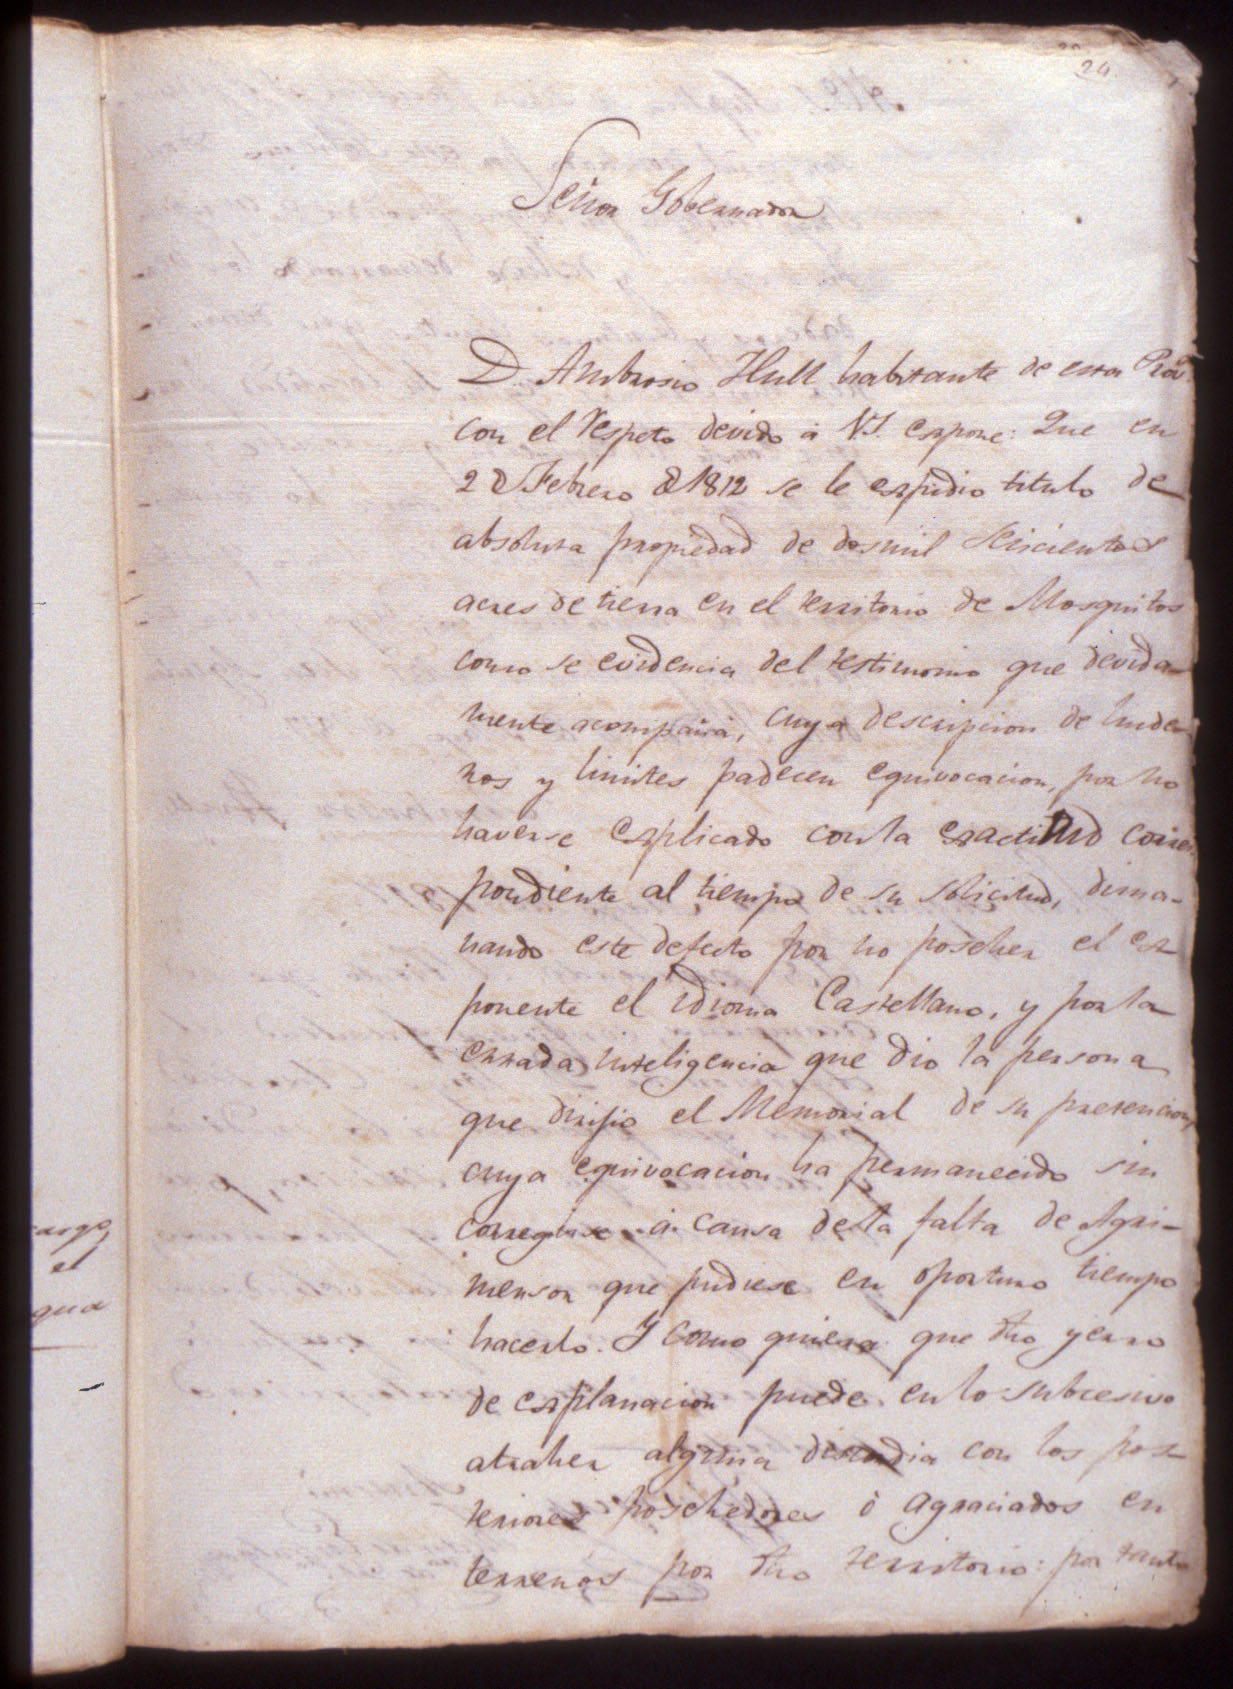 24
Señor Gobernador
D. Ambrosio Hull habitante de esta Prov.ª
con el respeto devido á V.S. expone: Que en
2 de Febrero de 1812 se le expidio titulo de
absoluta propiedad de dosmil seiscientos
acres de tierra en el territorio de Mosquitos
como se evidencia del testimonio que devida-
mente acompaña, cuya descripcion de linde-
ros y limites padecen equivocacion, por no
haverse explicado con la exactitud corres-
pondiente al tiempo de su solicitud, dima-
nando este defecto por no poseher el ex
ponente el idioma Castellano, y por la
errada inteligencia que dio la persona
que dirijio el Memorial de su pretencion,
cuya equivocacion ha permanecido sin
corregirse á causa de la falta de Agri-
mensor que pudiese en oportuno tiempo
hacerlo. Y como quiera que dho yerro
de explanacion puede en lo subcesivo
atraher alguna discordia con los pos
teriores posehedores ò agraciados en
terrenos por dho territorio: por tanto
cargo
el
qua